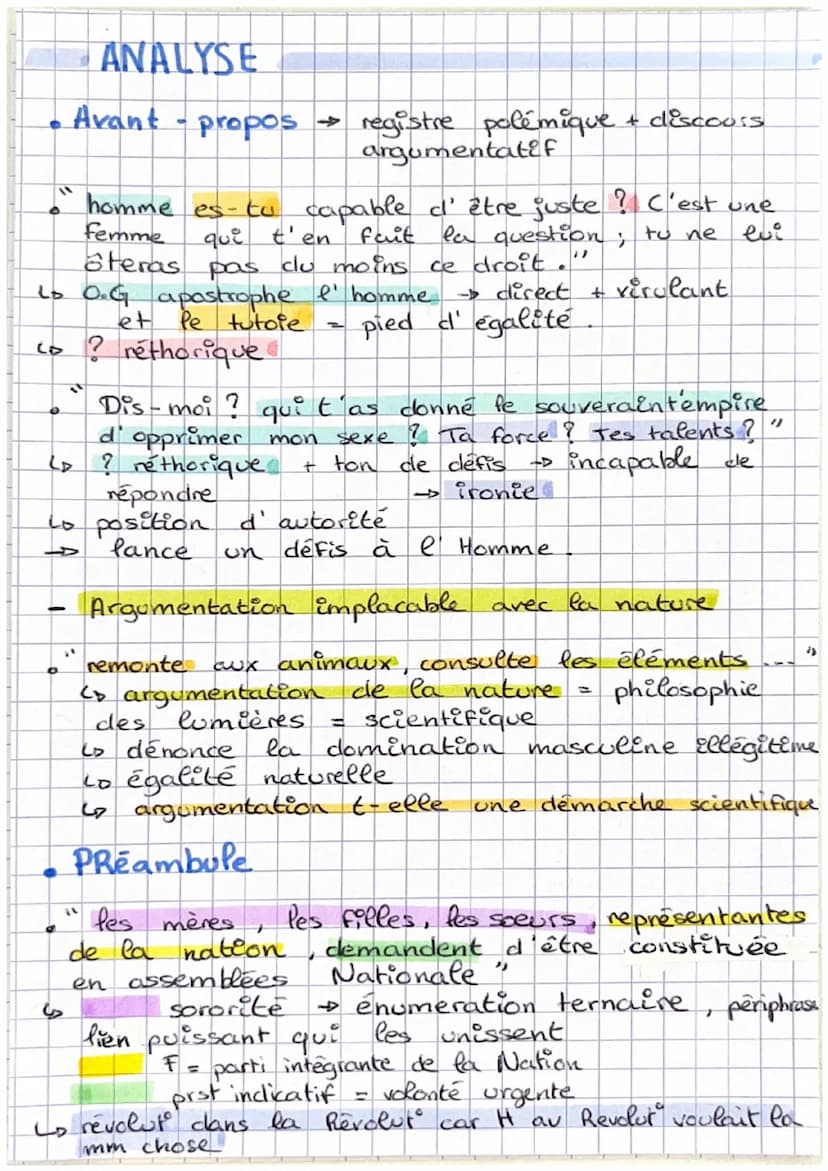 ANALYSE
• Avant - propos → registre polémique + discours
argumentatif
• " homme es-tu capable d'être juste ? C'est une
femme qui t'en fait la question ; tu ne lui
ôteras pas du moins ce droit . "
↳ O.G apostrophe l'homme → direct + virulant
et le tutoie = pied d'égalité .
↳ ? réthorique
• " Dis-moi ? qui t'as donné le souveraint empire
d'opprimer mon sexe ? Ta force ? Tes talents ? "
↳ ? réthorique + ton de défis → incapable de
répondre → ironie
↳ position d'autorité
→ lance un défis à l'Homme .
- Argumentation implacable avec la nature
• " remonte aux animaux , consulte les éléments ... "
↳ argumentation de la nature = philosophie
des lumières = scientifique
↳ dénonce la domination masculine illégitime
↳ égalité naturelle
↳ argumentation t-elle une démarche scientifique
• PRéambule
• " les mères , les filles , les soeurs , représentantes
de la nation , demandent d'être constituée
en assemblées Nationale "
↳ sororité → énumeration ternaire , périphrase
lien puissant qui les unissent
F = parti intégrante de la Nation
prst indicatif = volonté urgente
↳ révolut° dans la Révolut° car H au Revolut° voulait la
mm chose